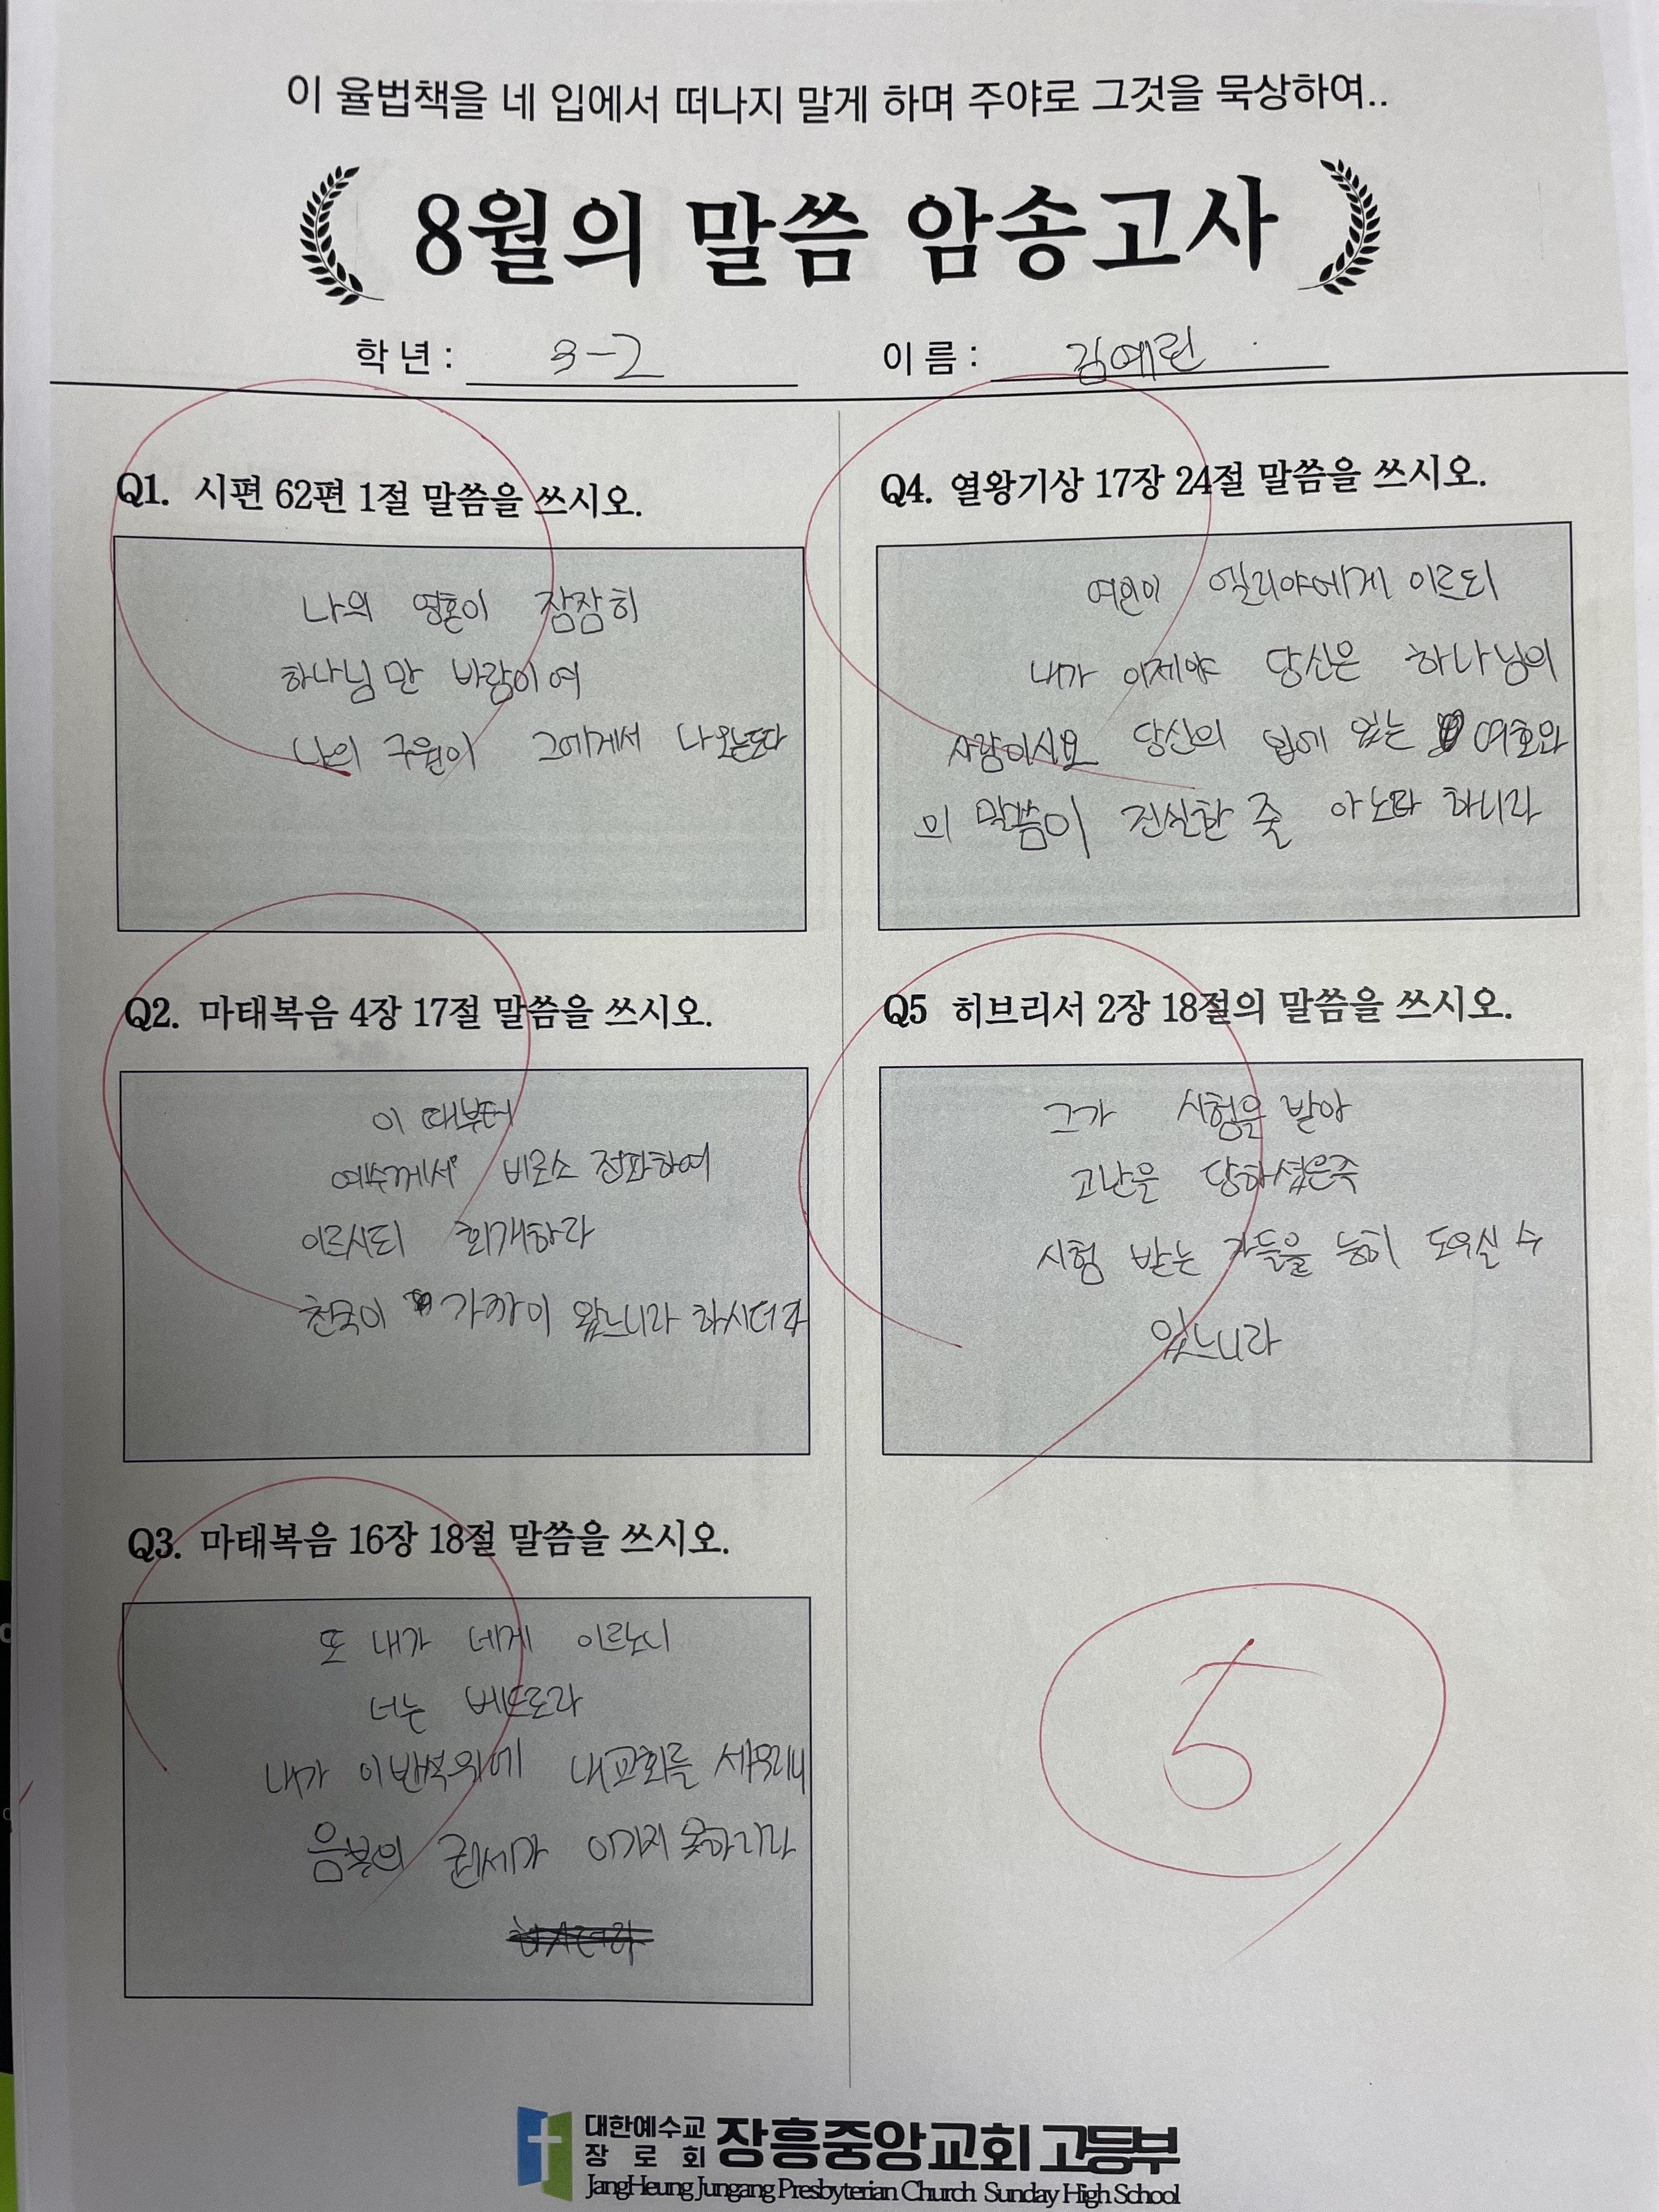 이 율법책을 네 입에서 떠나지 말게 하며 주야로 그것을 묵상하여..
8월의 말씀 암송고사
학년 : 3-2 이름 : 김예린
Q1. 시편 62편 1절 말씀을 쓰시오.
나의 영혼이 잠잠히
하나님만 바람이여
나의 구원이 그에게서 나오는도다
Q2. 마태복음 4장 17절 말씀을 쓰시오.
이 때부터
예수께서 비로소 전파하여
이르시되 회개하라
천국이 가까이 왔느니라 하시더라
Q3. 마태복음 16장 18절 말씀을 쓰시오.
또 내가 네게 이르노니
너는 베드로라
내가 이 반석위에 내교회를 세우리니
음부의 권세가 이기지 못하리라
Q4. 열왕기상 17장 24절 말씀을 쓰시오.
여인이 엘리야에게 이르되
내가 이제야 당신은 하나님의
사람이시요 당신의 입에 있는 여호와
의 말씀이 진실한 줄 아노라 하니라
Q5 히브리서 2장 18절의 말씀을 쓰시오.
그가 시험을 받아
고난을 당하셨은즉
시험 받는 자들을 능히 도우실 수
있느니라
5
대한예수교
장로회
장흥중앙교회 고등부
JangHeung Jungang Presbyterian Church Sunday High School